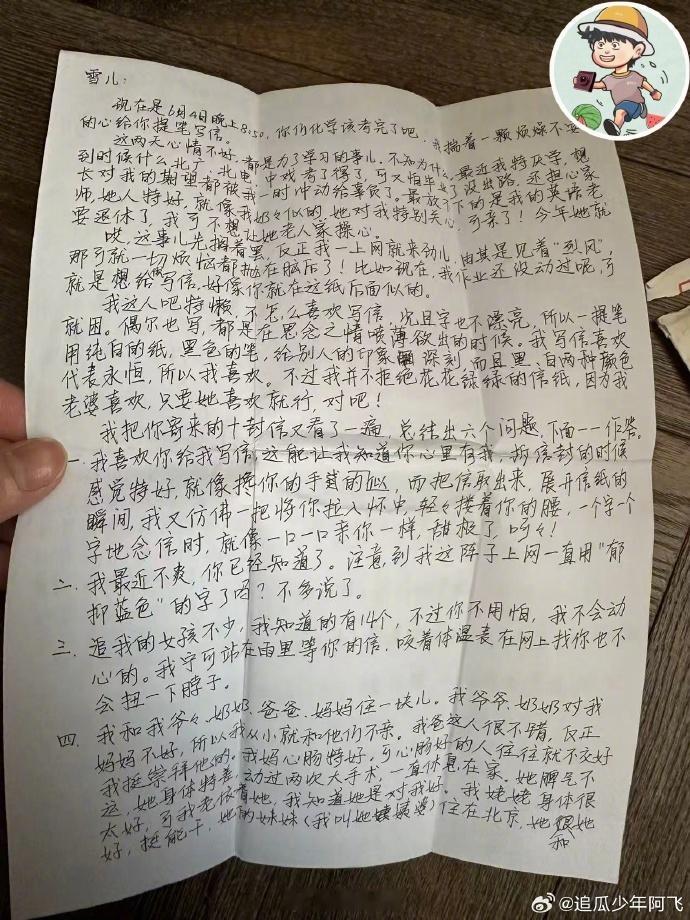 雪儿：
现在是6月4日晚上8:50，你们化学该考完了吧，我揣着一颗烦燥不安
的心给你提笔写信。
这两天心情不好，都是为了学习的事儿。不知为什么，最近我特厌学，想
到时候什么北广、北电、中戏考了得了，可又怕毕业了没出路，还担心家
长对我的期望都被我一时冲动给辜负了。最放不下的是我的英语老
师，她人特好，就像我奶奶似的，她对我特别关心，可亲了！今年她就
要退休了，我可不想让她老人家操心。
哎，这事儿先搁着罢，反正我一上网就来劲儿，由其是见着“烈风”，
那可就一切烦恼都抛在脑后了！比如现在，我作业还没动过呢，可
就是想给你写信，好像你就在这纸后面似的。
我这人吧特懒，不怎么喜欢写信，况且字也不漂亮，所以一提笔
就困。偶尔也写，都是在思念之情喷薄欲出的时候。我写信喜欢
用纯白的纸，黑色的笔，给别人的印象深刻，而且黑、白两种颜色
代表永恒，所以我喜欢。不过我并不拒绝花花绿绿的信纸，因为我
老婆喜欢，只要她喜欢就行，对吧！
我把你寄来的十封信又看了一遍，总结出六个问题，下面一一作答。
一、我喜欢你给我写信，这能让我知道你心里有我，拆信封的时候
感觉特好，就像搀你的手臂似，而把信取出来，展开信纸的
瞬间，我又仿佛一把将你拉入怀中，轻々搂着你的腰，一个字一个
字地念信时，就像一口一口亲你一样，甜极了，呵々！
二、我最近不爽，你已经知道了。注意到我这阵子上网一直用“郁
抑蓝色”的字了吗？不多说了。
三、追我的女孩不少，我知道的有14个，不过你不用怕，我不会动
心的。我宁可站在雨里等你的信，咬着体温表在网上找你也不
会扭一下脖子。
四、我和我爷々、奶奶、爸爸、妈妈住一块儿。我爷爷、奶奶对我
妈妈不好，所以我从小就和他们不亲。我爸这人很不错，反正
我挺崇拜他的。我妈心肠特好，可心肠好的人往往就不交好
运，她身体特差，动过两次大手术，一直休息在家。她脾气不
太好，可我老依着她，我知道她是对我好。我姥姥身体很
好，挺能干，她的妹妹（我叫她姨婆）住在北京，她和她
@追瓜少年阿飞